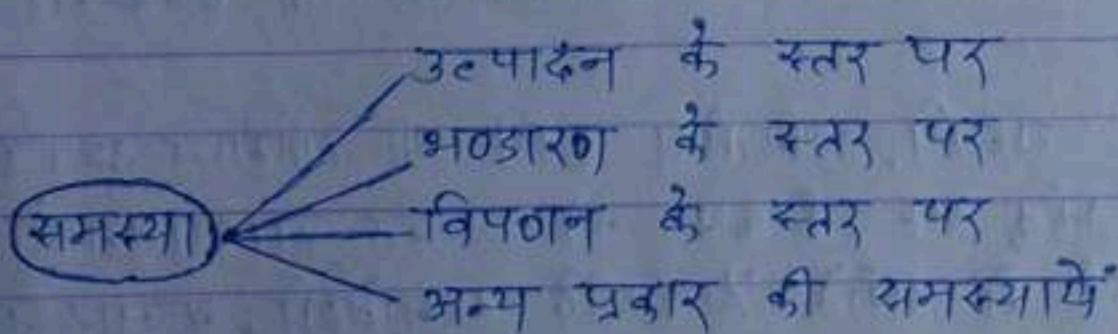 उत्पादन के स्तर पर
भण्डारण के स्तर पर
समस्या
विपणन के स्तर पर
अन्य प्रकार की समस्यायें